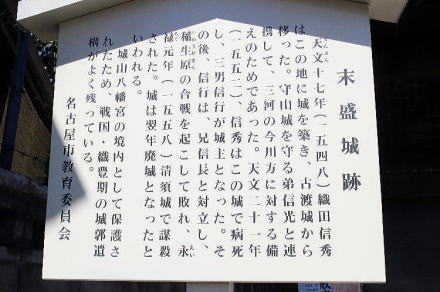 末盛城跡
天文十七年(一五四八)織田信秀
はこの地に城を築き、古渡城から
移った。守山城を守る弟信光と連
携して、三河の今川方に対する備
えのためであった。天文二十一年
(一五五二)、信秀はこの城で病死
し、三男信行が城主となった。そ
の後、信行は、兄信長と対立し、
稲生原の合戦を起こして敗れ、永
禄元年(一五五八)清須城で謀殺
された。城は翌年廃城となったと
いわれる。
城山八幡宮の境内として保護さ
れたため、戦国・織豊期の城郭遺
構がよく残っている。
名古屋市教育委員会